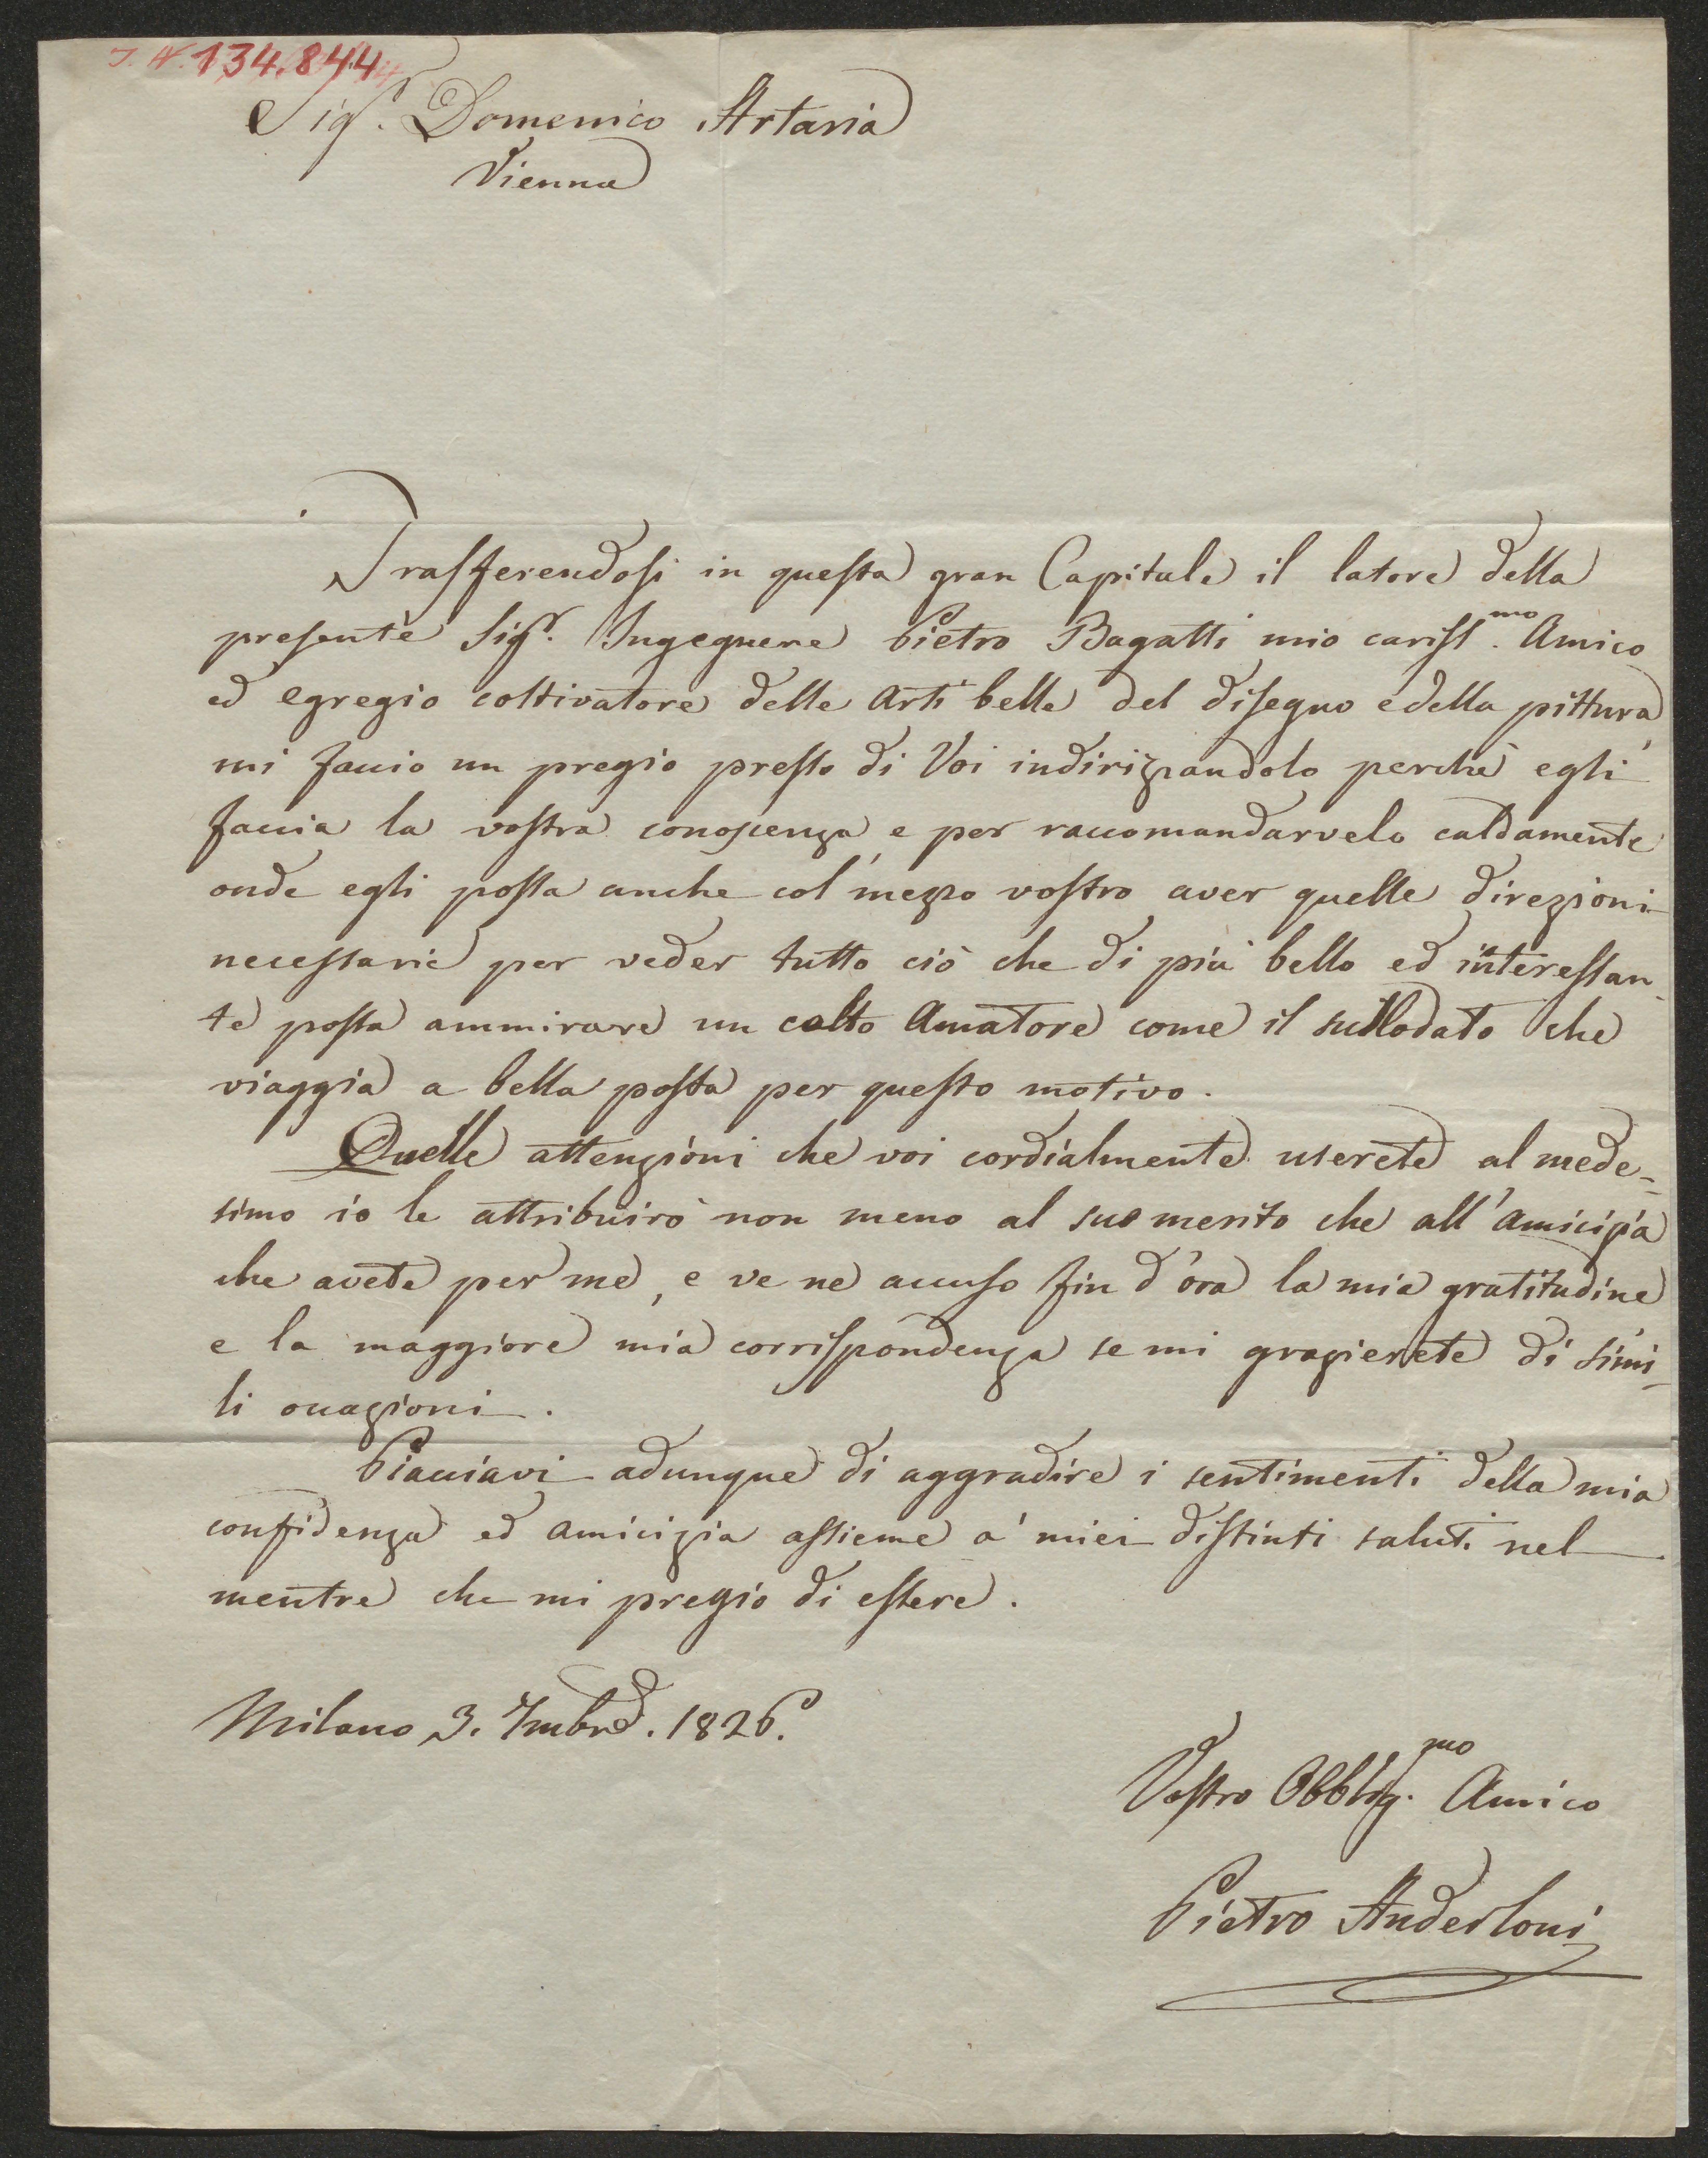 J. N. 134.844
Sigr. Domenico Artaria
Vienna
Trasferendosi in questa gran Capitale il latore della
presente Sigr. Ingegnere Pietro Bagatti mio carissmo. Amico
ed egregio coltivatore delle arti belle del disegno e della pittura,
mi faccio un pregio presso di Voi indirizzandolo perchè egli
faccia la vostra conoscenza, e per raccomandarvelo caldamente
onde egli possa anche col mezzo vostro aver quelle direzioni
necessarie per veder tutto ciò che di più bello ed interessan-
te possa ammirare un colto Amatore come il sullodato che
viaggia a bella posta per questo motivo.
Quelle attenzioni che voi cordialmente userete al mede-
simo io le attribuirò non meno al suo merito che all'amicizia
che avete per me, e ve ne accuso fin d'ora la mia gratitudine
e la maggiore mia corrispondenza se mi grazierete di simi-
li occazioni.
Piacciavi adunque di aggradire i sentimenti della mia
confidenza ed amicizia assieme a' miei distinti saluti nel
mentre che mi pregio di essere.
Milano 3. 7mbre. 1826.
Vostro Obbligmo. Amico
Pietro Anderloni